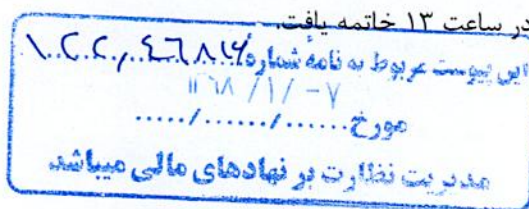 در ساعت ۱۳ خاتمه یافت.
این پیوست مربوط به نامهٔ شماره
مورخ ....../....../......
مدیریت نظارت بر نهادهای مالی میباشد